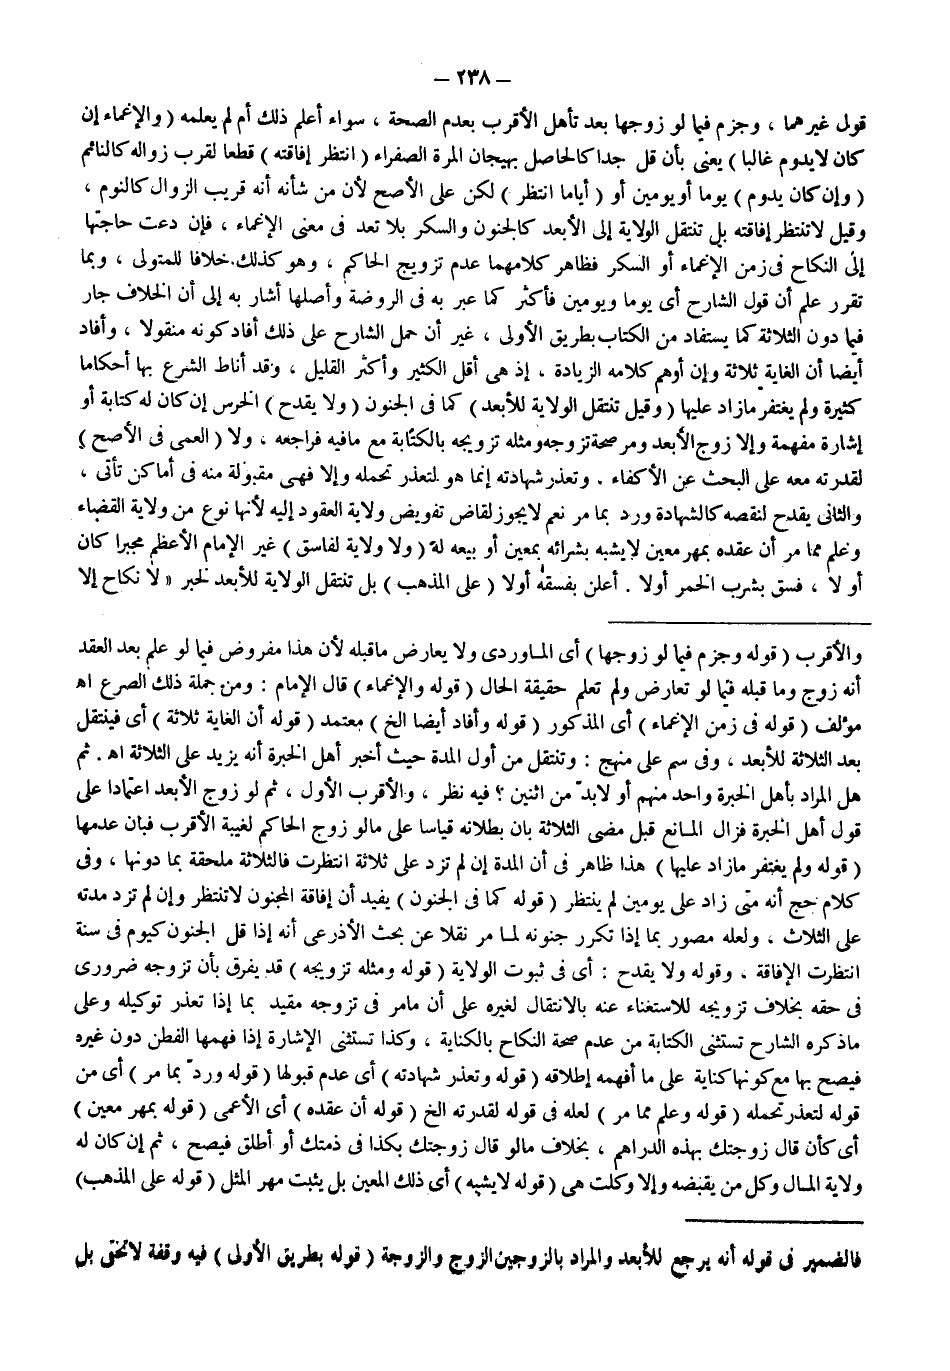 – ٢٣٨ –
قول غيرهما ، وجزم فيما لو زوجها بعد تأهل الأقرب بعدم الصحة ، سواء أعلم ذلك أم لم يعلمه ( والإغماء إن
كان لايدوم غالبا ) يعنى بأن قل جدا كالحاصل بهيجان المرة الصفراء ( انتظر إفاقته ) قطعا لقرب زواله كالنائم
( وإن كان يدوم ) يوما أو يومين أو ( أياما انتظر ) لكن على الأصح لأن من شأنه أنه قريب الزوال كالنوم ،
وقيل لاتنتظر إفاقته بل تنتقل الولاية إلى الأبعد كالجنون والسكر بلا تعد فى معنى الإغماء ، فإن دعت حاجتها
إلى النكاح فى زمن الإغماء أو السكر فظاهر كلامهما عدم تزويج الحاكم ، وهو كذلك.خلافا للمتولى ، وبما
تقرر علم أن قول الشارح أى يوما ويومين فأكثر كما عبر به فى الروضة وأصلها أشار به إلى أن الخلاف جار
فيما دون الثلاثة كما يستفاد من الكتاب بطريق الأولى ، غير أن حمل الشارح على ذلك أفاد كونه منقولا ، وأفاد
أيضا أن الغاية ثلاثة وإن أوهم كلامه الزيادة ، إذ هى أقل الكثير وأكثر القليل ، وقد أناط الشرع بها أحكاما
كثيرة ولم يغتفر مازاد عليها ( وقيل تنتقل الولاية للأبعد ) كما فى الجنون ( ولا يقدح ) الخرس إن كان له كتابة أو
إشارة مفهمة وإلا زوج الأبعد ومر صحة تزوجه ومثله تزويجه بالكتابة مع مافيه فراجعه ، ولا ( العمى فى الأصح )
لقدرته معه على البحث عن الأكفاء . وتعذر شهادته إنما هو لتعذر تحمله وإلا فهى مقبولة منه فى أماكن تأتى ،
والثانى يقدح لنقصه كالشهادة ورد بما مر نعم لايجوز لقاض تفويض ولاية العقود إليه لأنها نوع من ولاية القضاء
وعلم مما مر أن عقده بمهر معين لايشبه بشرائه بمعين أو بيعه له ( ولا ولاية لفاسق ) غير الإمام الأعظم مجبرا كان
أو لا ، فسق بشرب الخمر أولا . أعلن بفسقه أولا ( على المذهب ) بل تنتقل الولاية للأبعد لخبر « لا نكاح إلا
والأقرب ( قوله وجزم فيما لو زوجها ) أى الماوردى ولا يعارض ماقبله لأن هذا مفروض فيما لو علم بعد العقد
أنه زوج وما قبله فيما لو تعارض ولم تعلم حقيقة الحال ( قوله والإغماء ) قال الإمام : ومن جملة ذلك الصرع اه
مؤلف ( قوله فى زمن الإغماء ) أى المذكور ( قوله وأفاد أيضا الخ ) معتمد ( قوله أن الغاية ثلاثة ) أى فينتقل
بعد الثلاثة للأبعد ، وفى سم على منهج : وتنتقل من أول المدة حيث أخبر أهل الخبرة أنه يزيد على الثلاثة اه . ثم
هل المراد بأهل الخبرة واحد منهم أو لابدّ من اثنين ؟ فيه نظر ، والأقرب الأول ، ثم لو زوج الأبعد اعتمادا على
قول أهل الخبرة فزال المانع قبل مضى الثلاثة بان بطلانه قياسا على مالو زوج الحاكم لغيبة الأقرب فبان عدمها
( قوله ولم يغتفر مازاد عليها ) هذا ظاهر فى أن المدة إن لم تزد على ثلاثة انتظرت فالثلاثة ملحقة بما دونها ، وفى
كلام حج أنه متى زاد على يومين لم ينتظر ( قوله كما فى الجنون ) يفيد أن إفاقة المجنون لاتنتظر وإن لم تزد مدته
على الثلاث ، ولعله مصور بما إذا تكرر جنونه لما مر نقلا عن بحث الأذرعى أنه إذا قل الجنون كيوم فى سنة
انتظرت الإفاقة ، وقوله ولا يقدح : أى فى ثبوت الولاية ( قوله ومثله تزويجه ) قد يفرق بأن تزوجه ضرورى
فى حقه بخلاف تزويجه للاستغناء عنه بالانتقال لغيره على أن مامر فى تزوجه مقيد بما إذا تعذر توكيله وعلى
ماذكره الشارح تستثنى الكتابة من عدم صحة النكاح بالكناية ، وكذا تستثنى الإشارة إذا فهمها الفطن دون غيره
فيصح بها مع كونها كناية على ما أفهمه إطلاقه ( قوله وتعذر شهادته ) أى عدم قبولها ( قوله وردّ بما مر ) أى من
قوله لتعذر تحمله ( قوله وعلم مما مر ) لعله فى قوله لقدرته الخ ( قوله أن عقده ) أى الأعمى ( قوله بمهر معين )
أى كأن قال زوجتك بهذه الدراهم ، بخلاف مالو قال زوجتك بكذا فى ذمتك أو أطلق فيصح ، ثم إن كان له
ولاية المال وكل من يقبضه وإلا وكلت هى ( قوله لايشبه ) أى ذلك المعين بل يثبت مهر المثل ( قوله على المذهب)
فالضمير فى قوله أنه يرجع للأبعد والمراد بالزوجين الزوج والزوجة ( قوله بطريق الأولى ) فيه وقفة لاتخفى بل